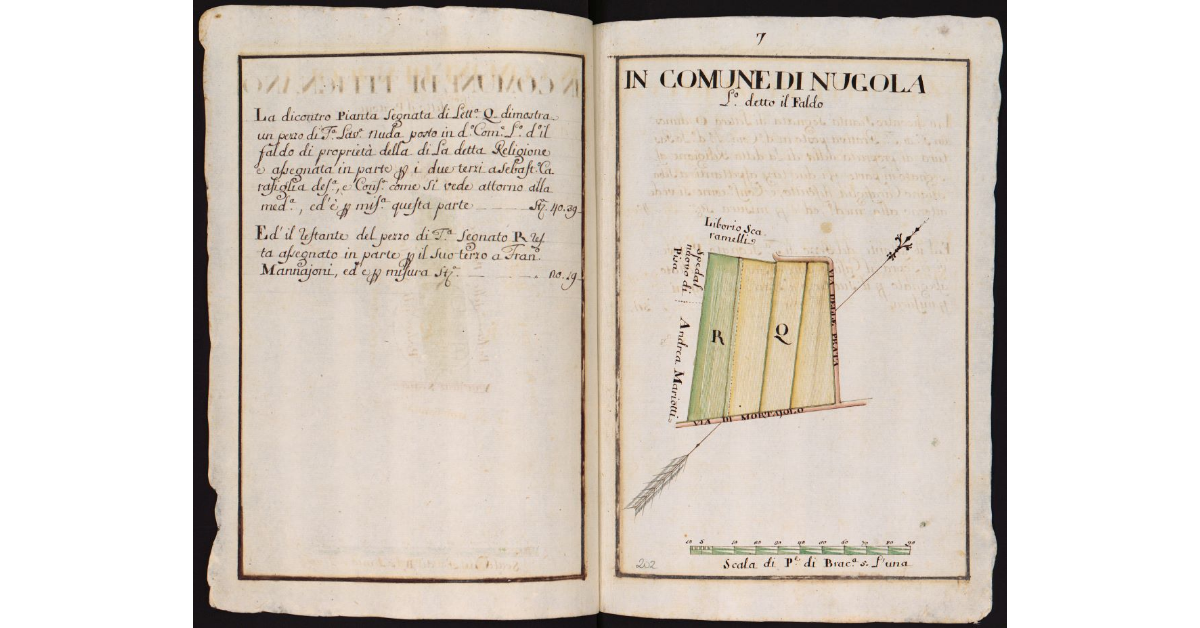 La dicontro Pianta segnata di Lettª Q dimostra
un pezo di Tª Lavª Nuda posto in dº Comº Lº dº il
faldo di proprietà della di La detta Religione
e assegnata in parte p i due terzi a Sebastº Ca
rafiglia desª, e Consº come si vede attorno alla
medª, ed'è p misª questa parte Stª 40.39
Ed'il restante del pezzo di Tª segnato R res
ta assegnato in parte p il suo terzo a Franº
Mannajoni, ed'è p misura Stª no.19
7
IN COMUNE DI NUGOLA
Lº detto il Faldo
Liborio Sca
ramelli
Spedal
nuovo di
Pisa
Andrea Mariotti
R
Q
VIA DELLE PRATA
VIA DI MORTAJOLO
10 5 10 20 30 40 50 60 70 80 90
Scala di Pº di Bracª 5. l'una
202